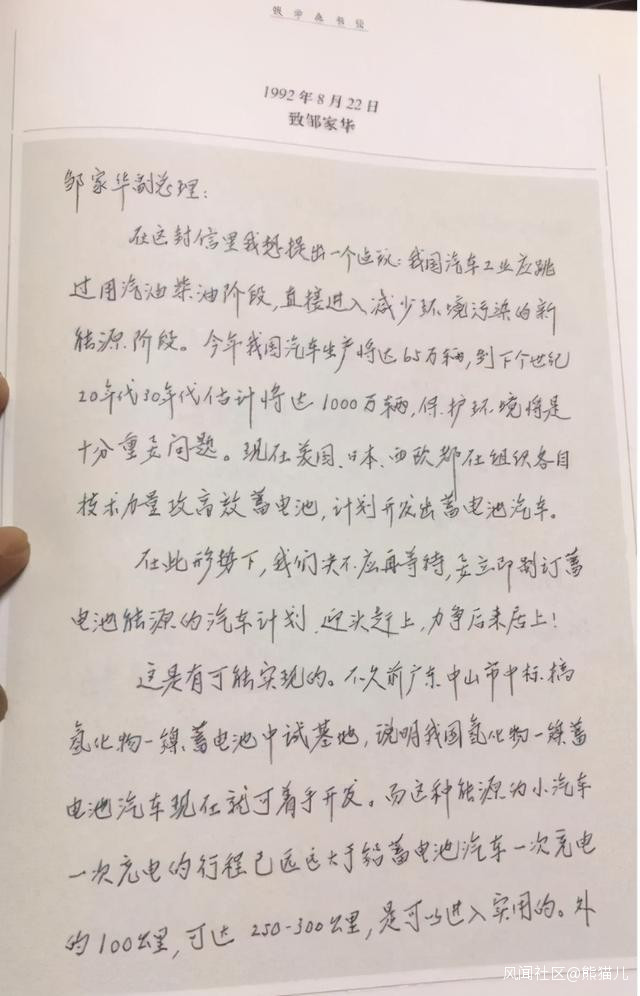 钱学森书信
1992年8月22日
致邹家华
邹家华副总理：
在这封信里我想提出一个建议：我国汽车工业应跳
过用汽油柴油阶段，直接进入减少环境污染的新
能源阶段。今年我国汽车生产将达65万辆，到下个世纪
20年代30年代估计将达1000万辆，保护环境将是
十分重要问题。现在美国、日本、西欧都在组织各自
技术力量攻高效蓄电池，计划开发出蓄电池汽车。
在此形势下，我们决不应再等待，要立即制订蓄
电池能源的汽车计划，迎头赶上，力争后来居上！
这是有可能实现的。不久前广东中山市中标搞
氢化物—镍蓄电池中试基地，说明我国氢化物—镍蓄
电池汽车现在就可着手开发。而这种能源为小汽车
一次充电的行程已远远大于铅蓄电池汽车一次充电
的100公里，可达250-300公里，是可以进入实用的。外
风闻社区@熊猫儿